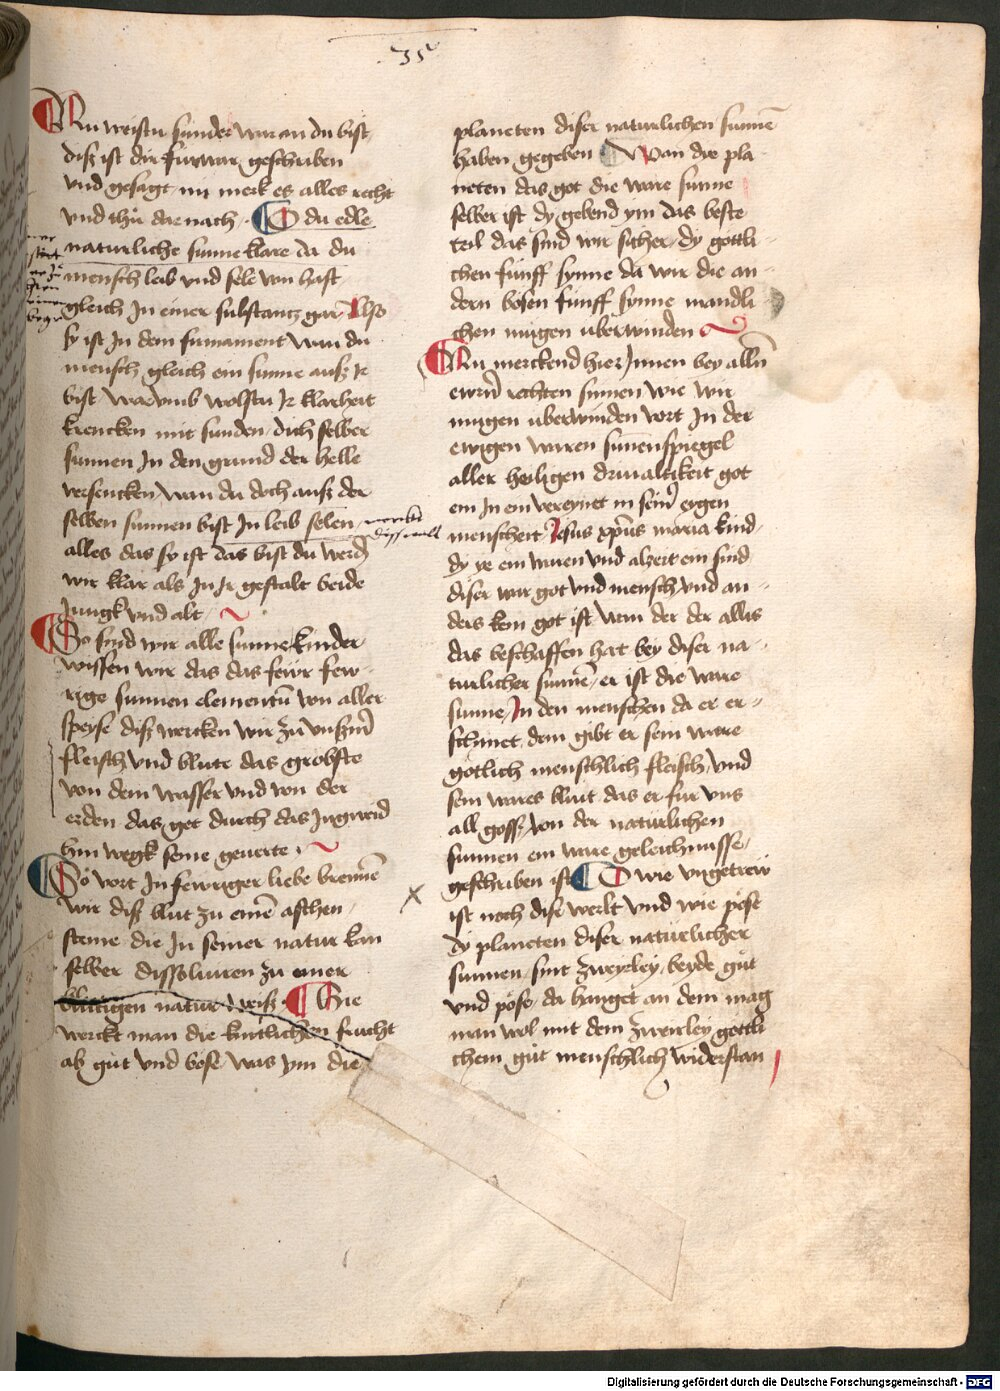 35
Nu weistu sunder war an du bist
diß ist dir furwar geschriben
vnd gesagt nu merk es alles recht
vnd thů dar nach · O du edle
naturliche sunne klare da du
mensch leib vnd sele von hast
gleich In einer substantz gar Also
sy ist In dem firmament wan du
mensch gleich ein sunne auß Ir
bist warvmb woltstu Ir klarheit
krencken mit sunden dich selber
sunnen In den grund der helle
versencken wan du doch auß der
selben sunnen bist In leib selen
alles das sy ist das bist du werd
wir klar als In Ir gestalt beide
Jungk vnd alt
So sind wir alle sunne kinder
wissen wir das das feẅr few
rige sunnen elementū von aller
speyse diß wercken wir zu vnßm̄
fleisch vnd blute das grobste
von dem wasser vnd von der
erden das get durch das Ingweid
hin wegk seine geuerte
So wort In fewriger liebe brennē
wir diß blut zu einē aschen
steine die In seiner natur kan
selber dissoluiren zu einer
blutigen natur weiß · Hie
werckt man die kintlichen frucht
ab gut vnd böse was ym die
planeten diser naturlichen sunnē
haben gegeben Wan die pla
neten das got die ware sunne
selber ist dy gebend ym das beste
teil das sind wir sicher dy gottli
chen funff synne da wir die an
dern bösen funff synne mandli
chen mugen uberwinden
Nu merckend hier Innen bey allñ
ewrñ rechten sinnen wie wir
mugen uberwinden vort In der
ewigen waren sunenspiegel
aller heiligen driualtikeit got
ein In ein vereynet in sein͛ eygen
menscheit Jesus xp̄us maria kind
dy ye ein waren vnd alzeit ein sind
diser war got vnd mensch vnd an
ders kein got ist wan der der alles
das beschaffen hat bey diser na
turlicher sunnē er ist die ware
sunne In den menschen da er er
schinet dem gibt er sein ware
götlich menschlich fleisch vnd
sein wares blüt das er fur vns
all goss von der naturlichen
sunnen ein ware geleichnusse
geschriben ist O wie vngetreẅ
ist noch dise werlt vnd wie pöse
dy planeten diser natürlicher
sunnen sint zweyrley beyde güt
vnd pöse da hanget an dem mag
man wol mit dem zweirley gottli
chem güt menschlich widerstan
Digitalisierung gefördert durch die Deutsche Forschungsgemeinschaft - DFG